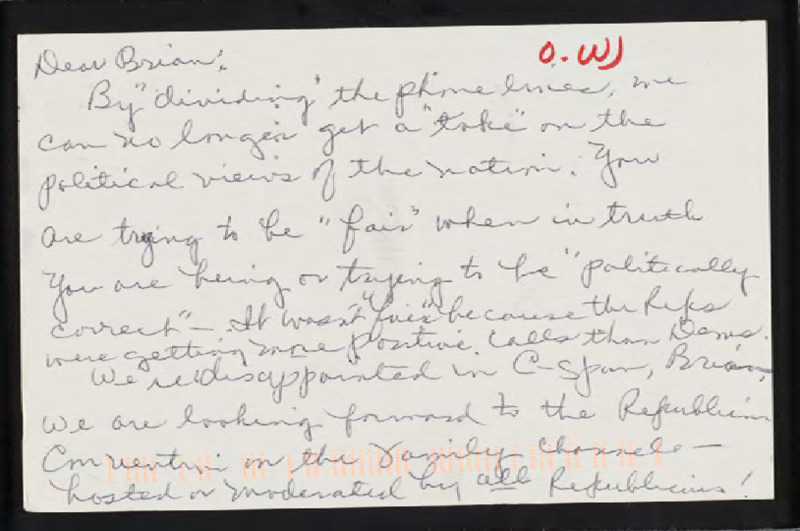 O.W)
Dear Brian:
By "dividing" the phone lines, we
can no longer get a "take" on the
political views of the nation. You
are trying to be "fair" when in truth
you are being or trying to be "politically
correct" — It wasn't "fair" because the Reps
were getting more positive calls than Dems.
We're disappointed in C-Span, Brian,
we are looking forward to the Republican
Convention on the Family Channel —
hosted or moderated by all Republicans!